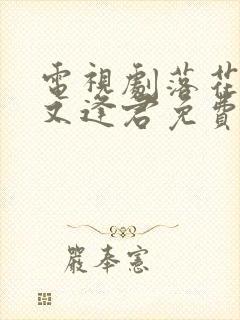 電視劇落花
又逢君免費
嚴奉憲